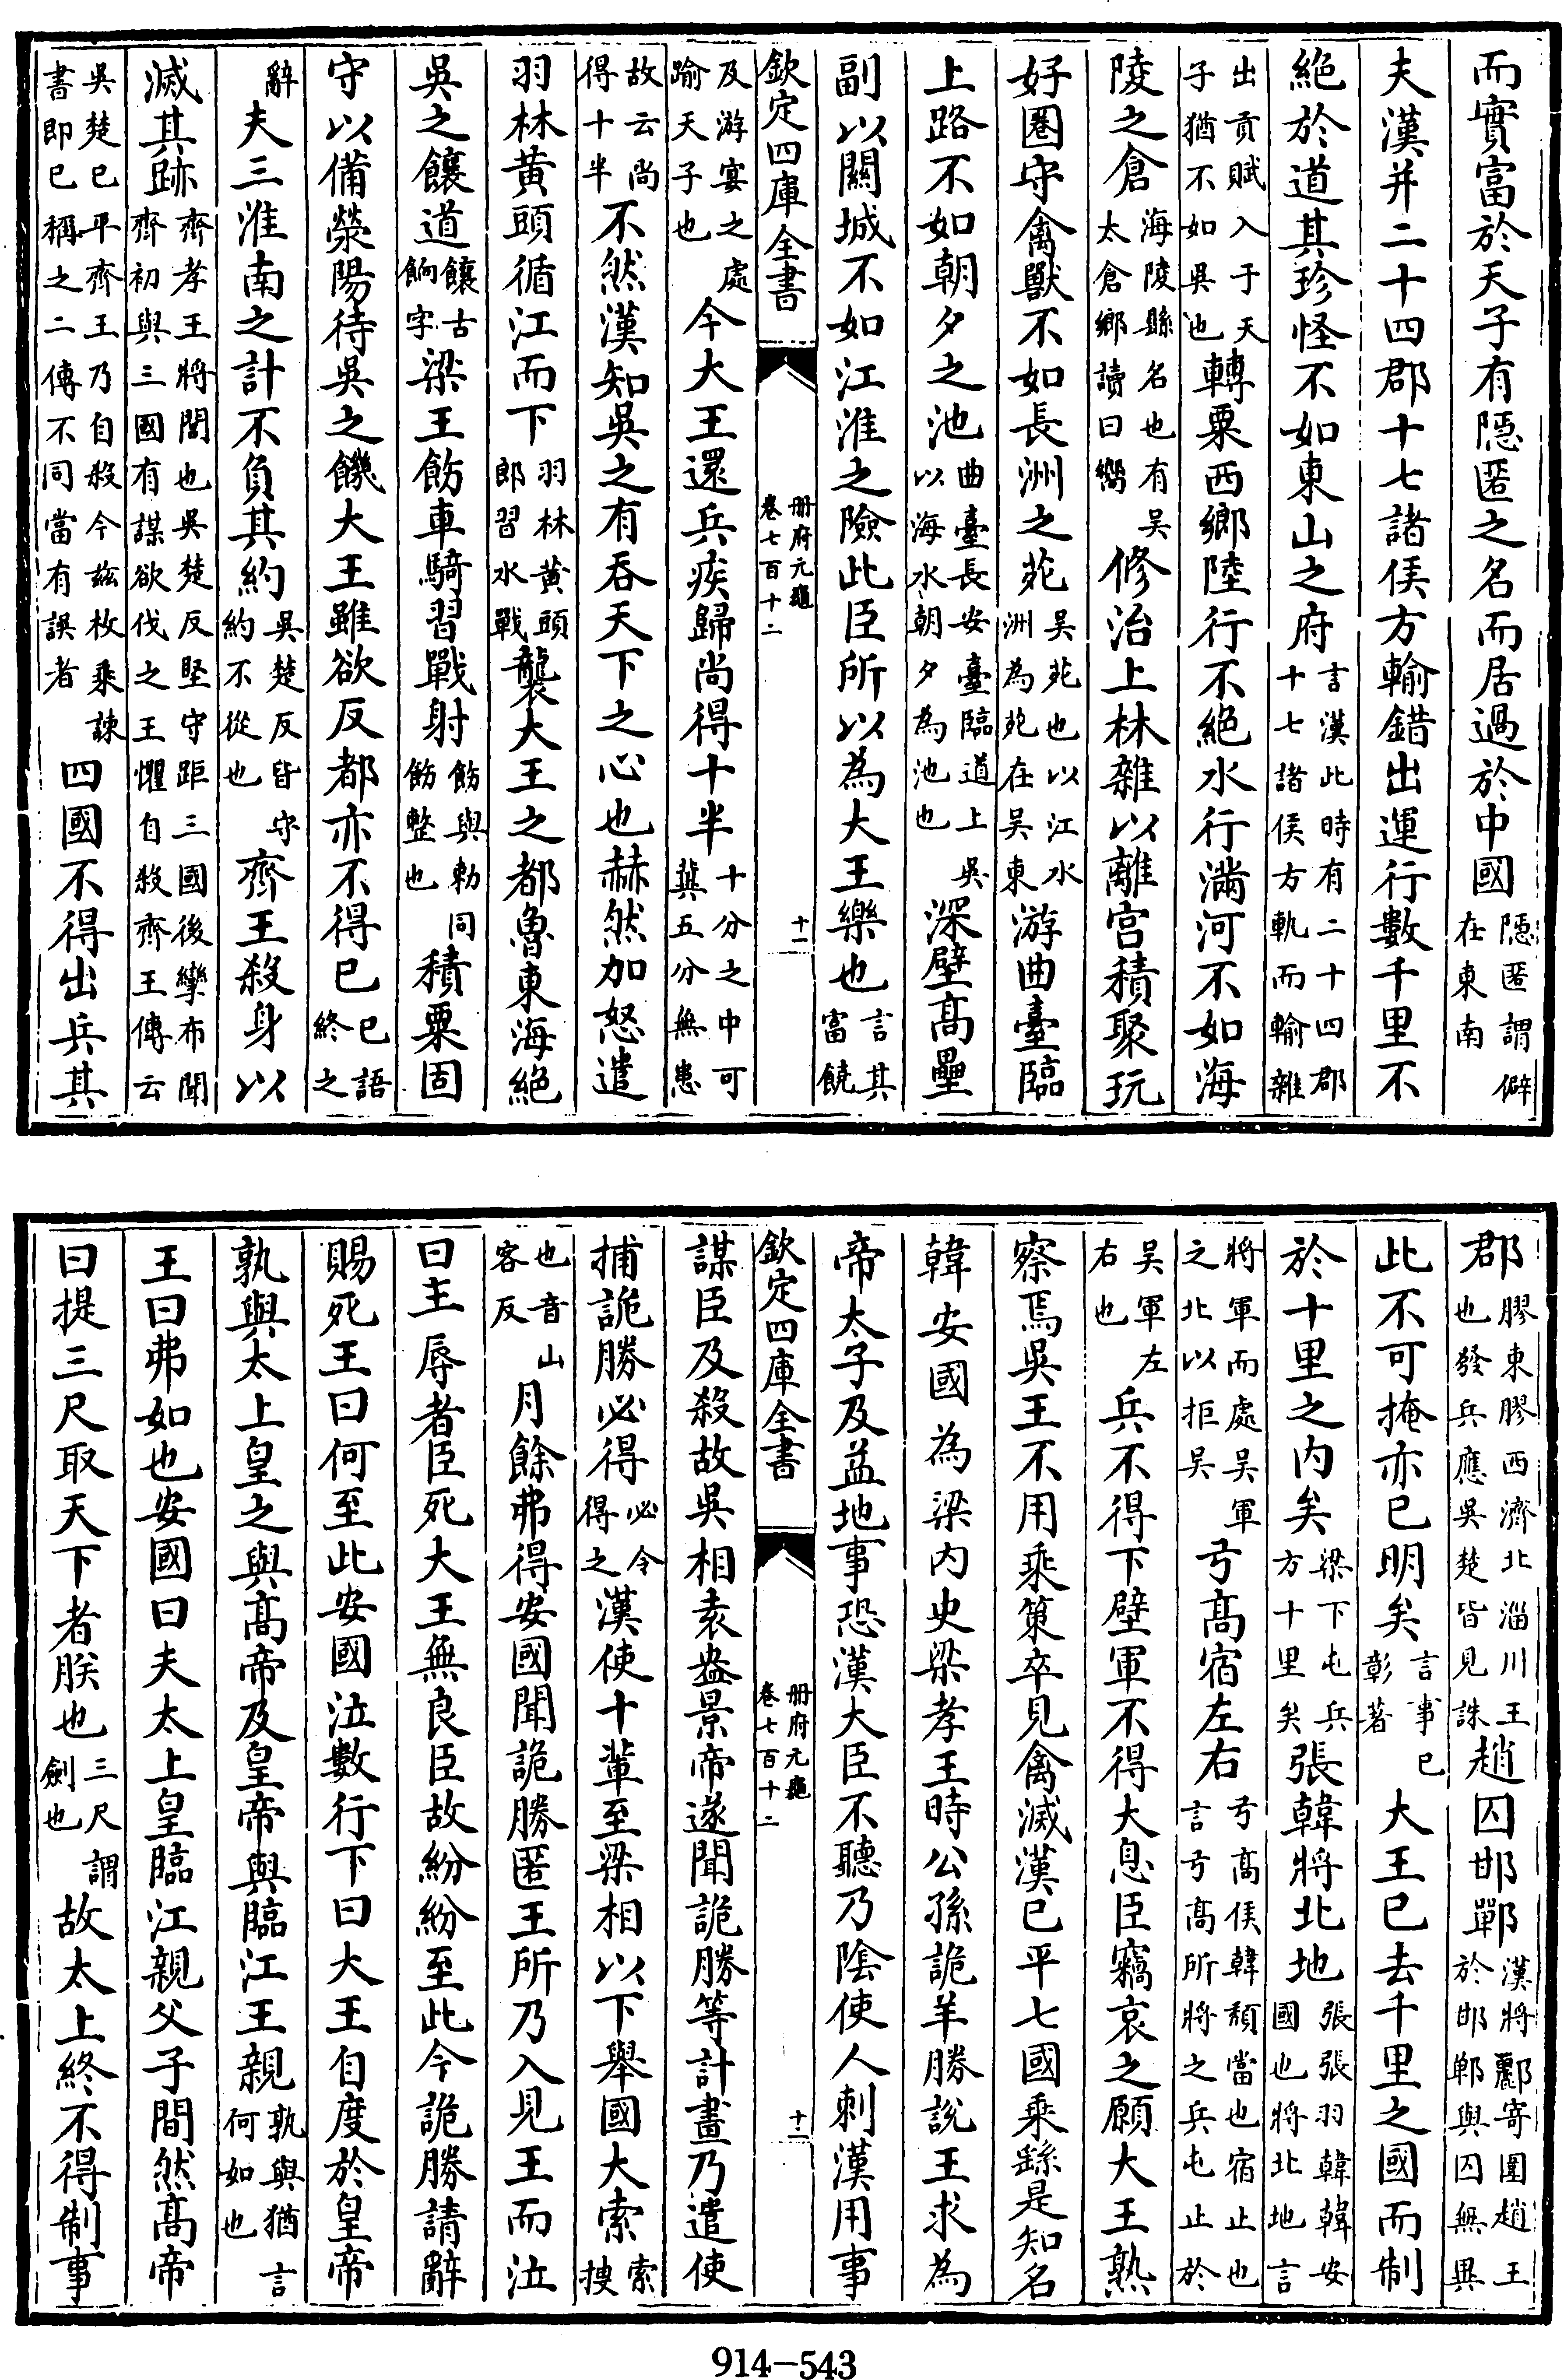 而實富於天子有隱匿之名而居過於中國隱匿謂僻在東南
夫漢并二十四郡十七諸侯方輸錯出運行數千里不
絕於道其珍怪不如東山之府言漢此時有二十四郡十七諸侯方軌而輸雜
出貢賦入于天子猶不如吳也轉粟西鄉陸行不絕水行滿河不如海
陵之倉海陵縣名也有吳太倉鄉讀曰嚮修治上林雜以離宮積聚玩
好圈守禽獸不如長洲之苑吳苑也以江水洲為苑在吳東游曲臺臨
上路不如朝夕之池曲臺長安臺臨道上吳以海水朝夕為池也深壁高壘
副以關城不如江淮之險此臣所以為大王樂也言其富饒
欽定四庫全書
冊府元龜
卷七百十二
十一
及游宴之處踰天子也今大王還兵疾歸尚得十半十分之中可冀五分無患
故云尚得十半不然漢知吳之有吞天下之心也赫然加怒遣
羽林黃頭循江而下羽林黃頭郎習水戰襲大王之都魯東海絕
吳之饟道饟古餉字梁王飭車騎習戰射飭與勅同飭整也積粟固
守以備滎陽待吳之饑大王雖欲反都亦不得已已語終之
辭夫三淮南之計不負其約吳楚反皆守約不從也齊王殺身以
滅其跡齊孝王將閭也吳楚反堅守距三國後欒布聞齊初與三國有謀欲伐之王懼自殺齊王傳云
吳楚已平齊王乃自殺今茲枚乘諫書即已稱之二傳不同當有誤者四國不得出兵其
郡膠東膠西濟北淄川王也發兵應吳楚皆見誅趙囚邯鄲漢將酈寄圍趙王於邯鄲與囚無異
此不可掩亦已明矣言事已彰著大王已去千里之國而制
於十里之內矣梁下屯兵方十里矣張韓將北地張張羽韓韓安國也將北地言
將軍而處吳軍之北以拒吳弓高宿左右弓高侯韓頹當也宿止也言弓高所將之兵屯止於
吳軍左右也兵不得下壁軍不得大息臣竊哀之願大王熟
察焉吳王不用乘策卒見禽滅漢已平七國乘繇是知名
韓安國為梁內史梁孝王時公孫詭羊勝說王求為
帝太子及益地事恐漢大臣不聽乃陰使人刺漢用事
欽定四庫全書
冊府元龜
卷七百十二
十二
謀臣及殺故吳相袁盎景帝遂聞詭勝等計畫乃遣使
捕詭勝必得必令得之漢使十輩至梁相以下舉國大索索搜
也音山客反月餘弗得安國聞詭勝匿王所乃入見王而泣
曰主辱者臣死大王無良臣故紛紛至此今詭勝請辭
賜死王曰何至此安國泣數行下曰大王自度於皇帝
孰與太上皇之與高帝及皇帝與臨江王親孰與猶言何如也
王曰弗如也安國曰夫太上皇臨江親父子間然高帝
曰提三尺取天下者朕也三尺謂劍也故太上終不得制事
914-543